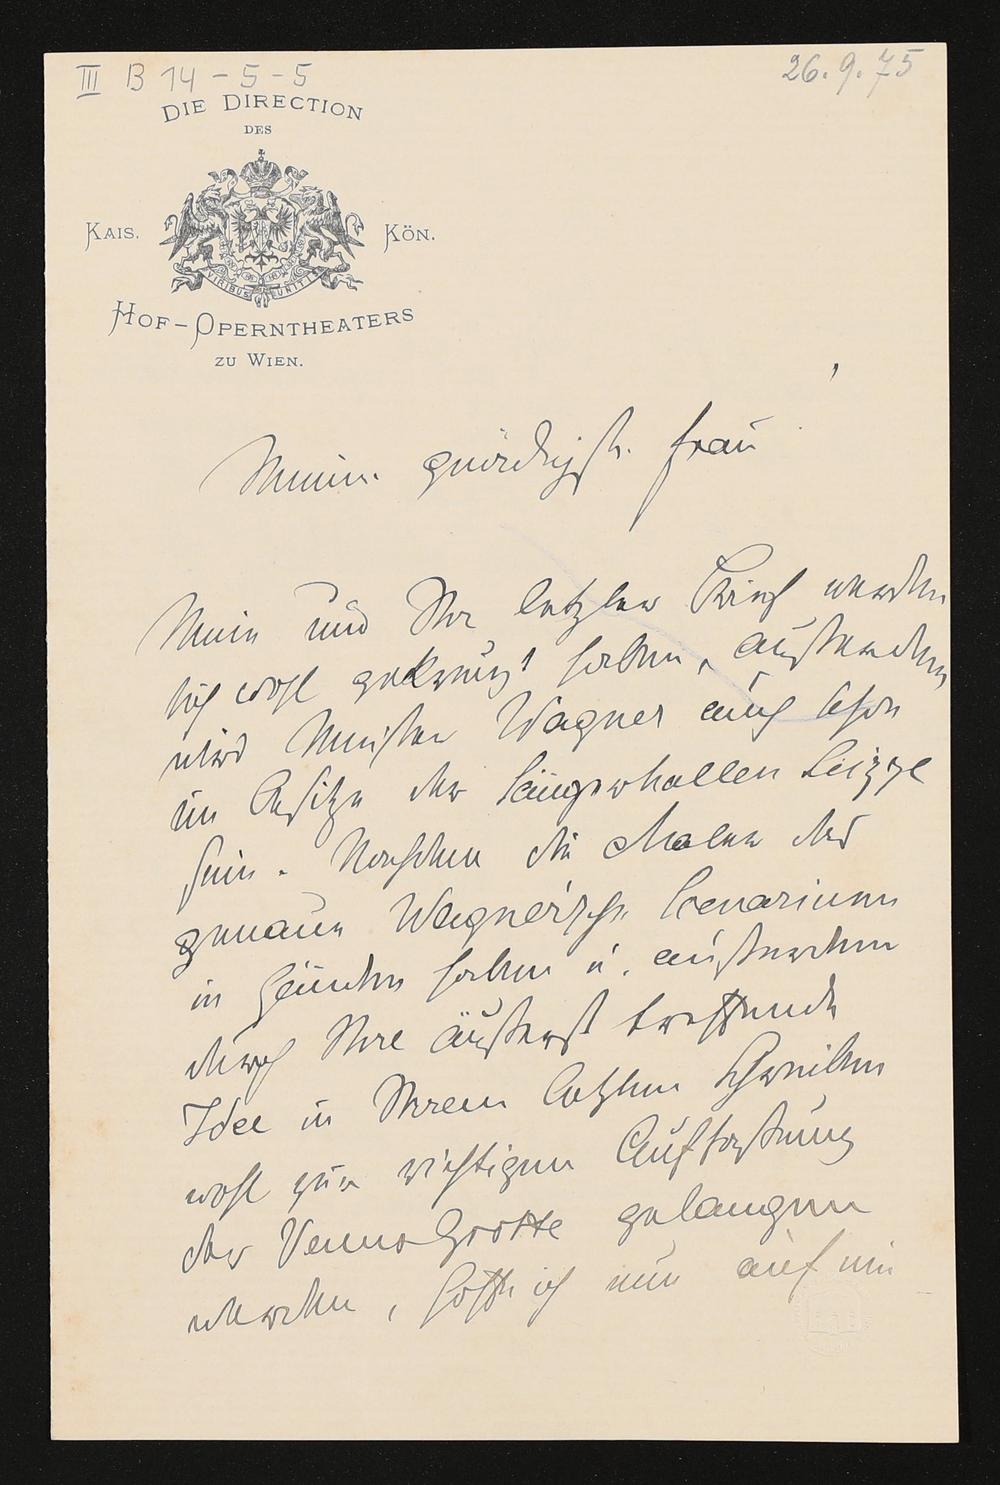 III B 14-5-5
26.9.75
DIE DIRECTION
DES
KAIS. KÖN.
VIRIBUS UNITIS
HOF-OPERNTHEATERS
ZU WIEN.
Meine gnädigste Frau
Mein und Ihr letzter Brief werden
sich wohl gekreuzt haben, außerdem
wird Meister Wagner auch schon
im Besitze der Sängerhallen Skizze
sein. Nachdem die Maler das
genaue Wagner'sche Scenarium
in Händen haben u. außerdem
durch Ihre äußerst treffende
Idee in Ihrem letzten Schreiben
wohl zur richtigen Auffassung
der Venus Grotte gelangen
werden, hoffe ich nun auf ein